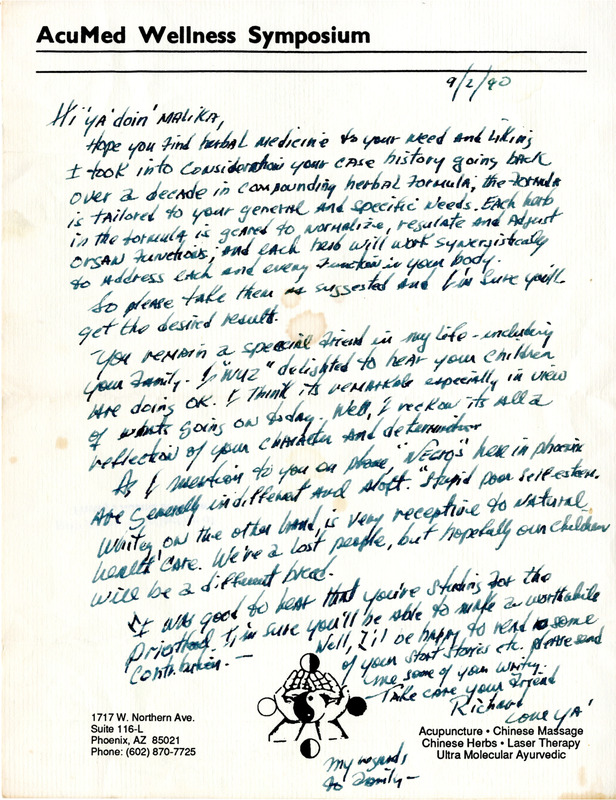 AcuMed Wellness Symposium
9/2/90
Hi 'YA' doin' MALIKA,
Hope you find herbal medicine to your need and liking
I took into consideration your case history going back
over a decade in compounding herbal formula; the formula
is tailored to your general and specific needs. Each herb
in the formula is geared to normalize, regulate and adjust
organ functions; and each herb will work synersistically
to address each and every function in your body.
So please take them as suggested and I'm sure you'll
get the desired result.
You remain a special friend in my life - including
your family. I "WUZ" delighted to hear your children
are doing OK. I think its remarkable especially in view
of whats going on today. Well, I reckow its all a
reflection of your character and determination
As I mention to you on phone, "NEgros" here in phoenix
are generally indifferent and aloft. "Stupid poor self-esteem.
Whitey on the other hand, is very receptive to natural
health care. We're a lost people, but hopefully our children
will be a different breed.
It was good to hear that you're studing for the
Priesthood I'm sure you'll be able to make a worthwhile
contribution. —
Well, I'll be happy to read some
of your short stories etc. please send
me some of your writing.
— Take care your friend
Richard
Love YA'
1717 W. Northern Ave.
Suite 116-L
Phoenix, AZ 85021
Phone: (602) 870-7725
Acupuncture • Chinese Massage
Chinese Herbs • Laser Therapy
Ultra Molecular Ayurvedic
my regards
to family —